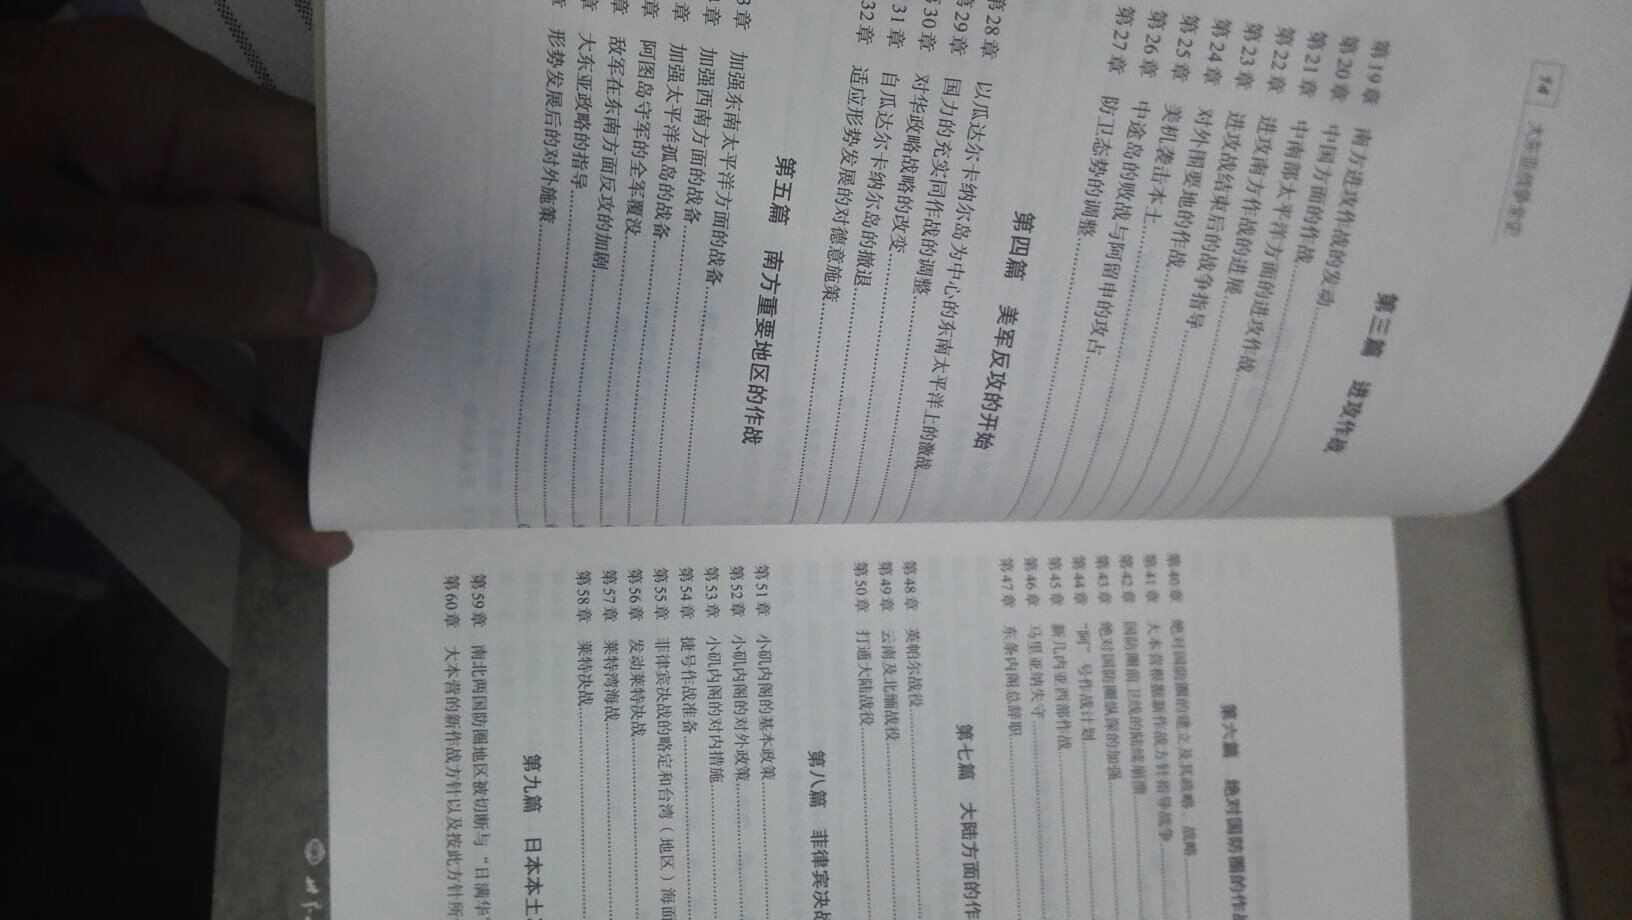 大东亚战争全史
第三篇 进攻作战
第19章 南方进攻作战的发动
第20章 中国方面的作战
第21章 中南部太平洋方面的进攻作战
第22章 进攻南方作战的进展
第23章 进攻战结束后的战争指导
第24章 对外围要地的作战
第25章 美机袭击本土
第26章 中途岛的败战与阿留申的攻占
第27章 防卫态势的调整
第四篇 美军反攻的开始
第28章 以瓜达尔卡纳尔岛为中心的东南太平洋上的激战
第29章 国力的充实同作战的调整
第30章 对华政略战略的改变
31章 自瓜达尔卡纳尔岛的撤退
32章 适应形势发展的对德意施策
第五篇 南方重要地区的作战
3章 加强东南太平洋方面的战备
章 加强西南方面的战备
章 加强太平洋孤岛的战备
章 阿图岛守军的全军覆没
章 敌军在东南方面反攻的加剧
章 大东亚政略的指导
形势发展后的对外施策
第六篇 绝对国防圈的作战
第40章 绝对国防圈的建立及其政略、战略
第41章 大本营根据新作战方针指导战争
第42章 国防圈前卫线的陆续崩溃
第43章 绝对国防圈纵深的加强
第44章 “阿”号作战计划
第45章 新几内亚西部作战
第46章 马里亚纳失守
第47章 东条内阁总辞职
第七篇 大陆方面的作
第48章 英帕尔战役
第49章 云南及北缅战役
第50章 打通大陆战役
第八篇 菲律宾决战
第51章 小矶内阁的基本政策
第52章 小矶内阁的对外政策
第53章 小矶内阁的对内措施
第54章 捷号作战准备
第55章 菲律宾决战的略定和台湾（地区）海面
第56章 发动莱特决战
第57章 莱特湾海战
第58章 莱特决战
第九篇 日本本土
第59章 南北两国防圈地区被切断与“日满华”
第60章 大本营的新作战方针以及按此方针所